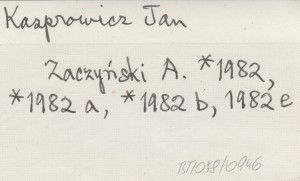 Kasprowicz Jan
Zaczyński A. *1982,
*1982 a, *1982 b, 1982 e